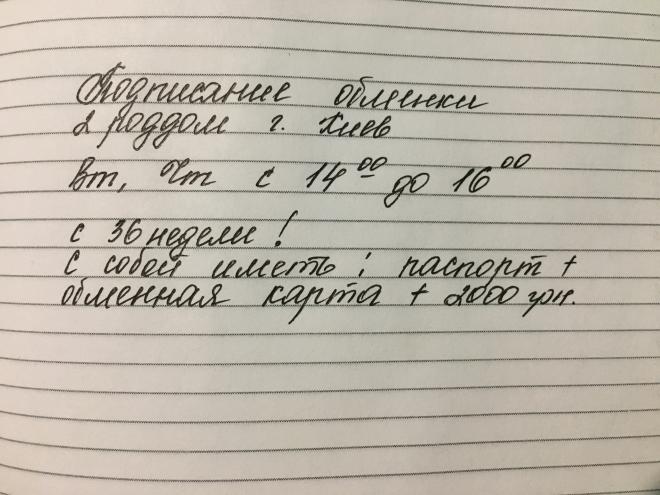 Подписание обменки
2 роддом г. Киев
Вт, Чт с 14⁰⁰ до 16⁰⁰
с 36 недели!
с собой иметь: паспорт +
обменная карта + 2000 грн.